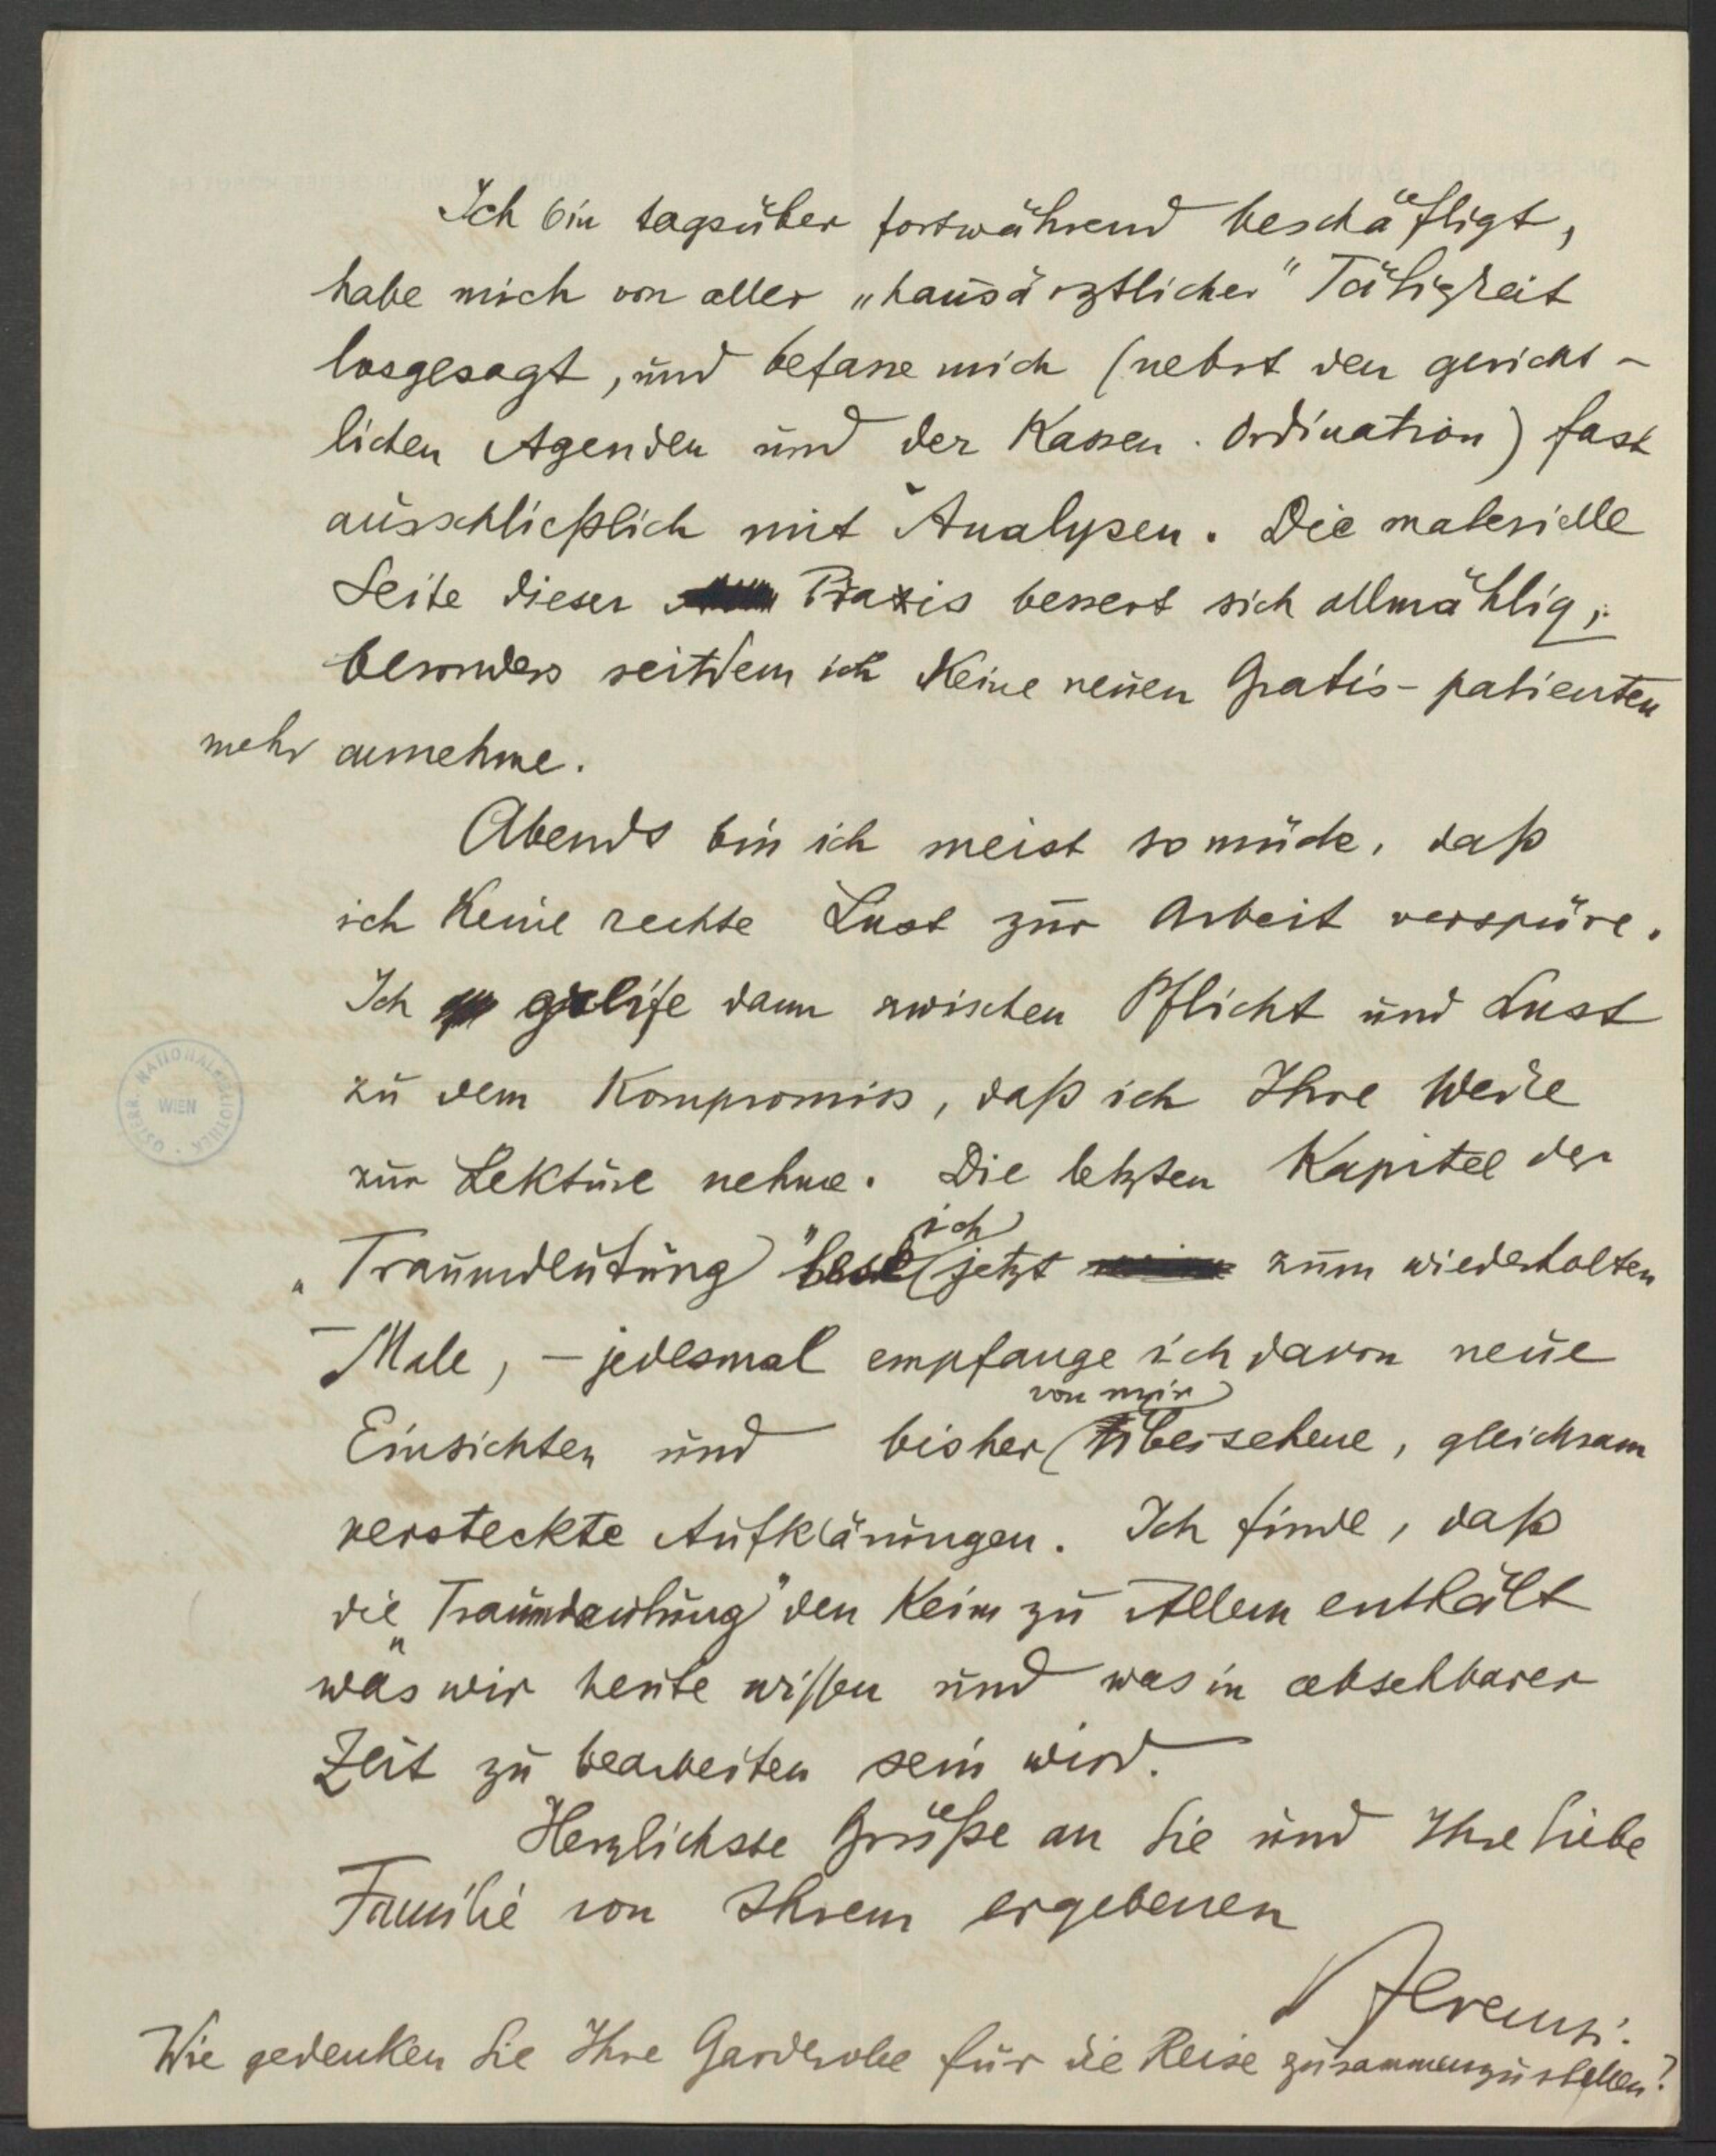 Ich bin tagsüber fortwährend beschäftigt,
habe mich von aller „hausärztlicher" Tätigkeit
losgesagt, und befasse mich (nebst den gericht-
lichen Agenden und der Kassen-Ordination) fast
ausschließlich mit Analysen. Die materielle
Seite dieser Praxis bessert sich allmählig,
besonders seitdem ich keine neuen Gratis-patienten
mehr annehme.
Abends bin ich meist so müde, daß
ich keine rechte Lust zur Arbeit verspüre.
Ich greife dann zwischen Pflicht und Lust
zu dem Kompromiss, daß ich Ihre Werke
zur Lektüre nehme. Die letzten Kapitel der
„Traumdeutung" lese ich jetzt zum wiederholten
Male, – jedesmal empfange ich davon neue
Einsichten und bisher von mir übersehene, gleichsam
versteckte Aufklärungen. Ich finde, daß
die „Traumdeutung" den Keim zu Allem enthält
was wir heute wissen und was in absehbarer
Zeit zu bearbeiten sein wird.
Herzlichste Grüße an Sie und Ihre liebe
Familie von Ihrem ergebenen
Ferenczi.
Wie gedenken Sie Ihre Garderobe für die Reise zusammenzustellen?
ÖSTERR. NATIONALBIBLIOTHEK
WIEN